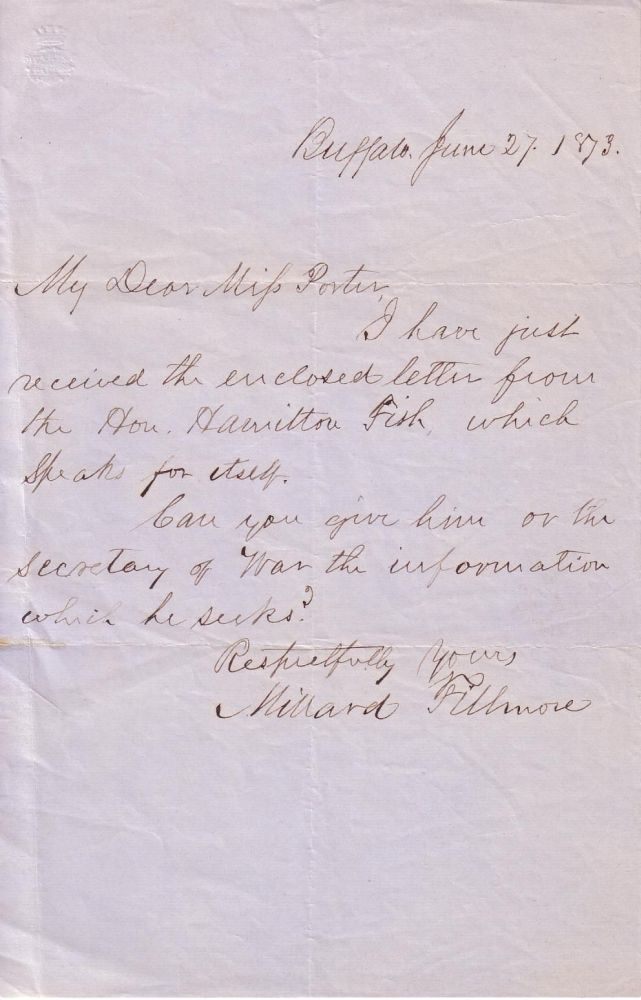 Buffalo. June 27. 1873.
My Dear Miss Porter,
I have just
received the enclosed letter from
the Hon. Hamilton Fish, which
speaks for itself.
Can you give him or the
secretary of War the information
which he seeks?
Respectfully Yours
Millard Fillmore